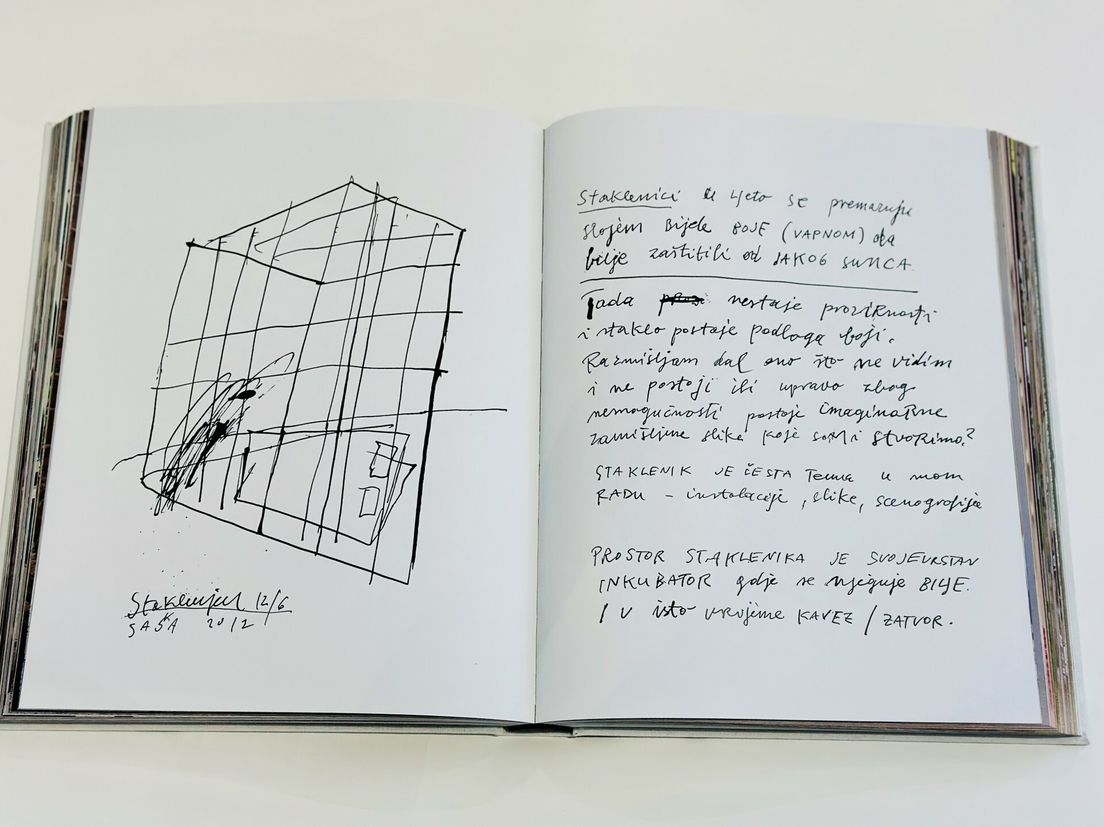 Staklenici 12/6
SAŠA 2012
Staklenici u ljeto se premazuju
slojem Bijele BOJE (VAPNOM) da
bilje zaštitili od JAKOG SUNCA.
Tada nestaje prozirnosti
i staklo postaje podloga boji.
Razmišljam dal ono što ne vidim
i ne postoji ili upravo zbog
nemogućnosti postoje imaginarne
zamišljene slike koje sami stvorimo?
STAKLENIK JE ČESTA Tema u mom
RADU - instalacije, slike, scenografije
PROSTOR STAKLENIKA JE SVOJEVRSTAN
INKUBATOR gdje se njeguje BILJE.
I U isto vrijeme KAVEZ / ZATVOR.